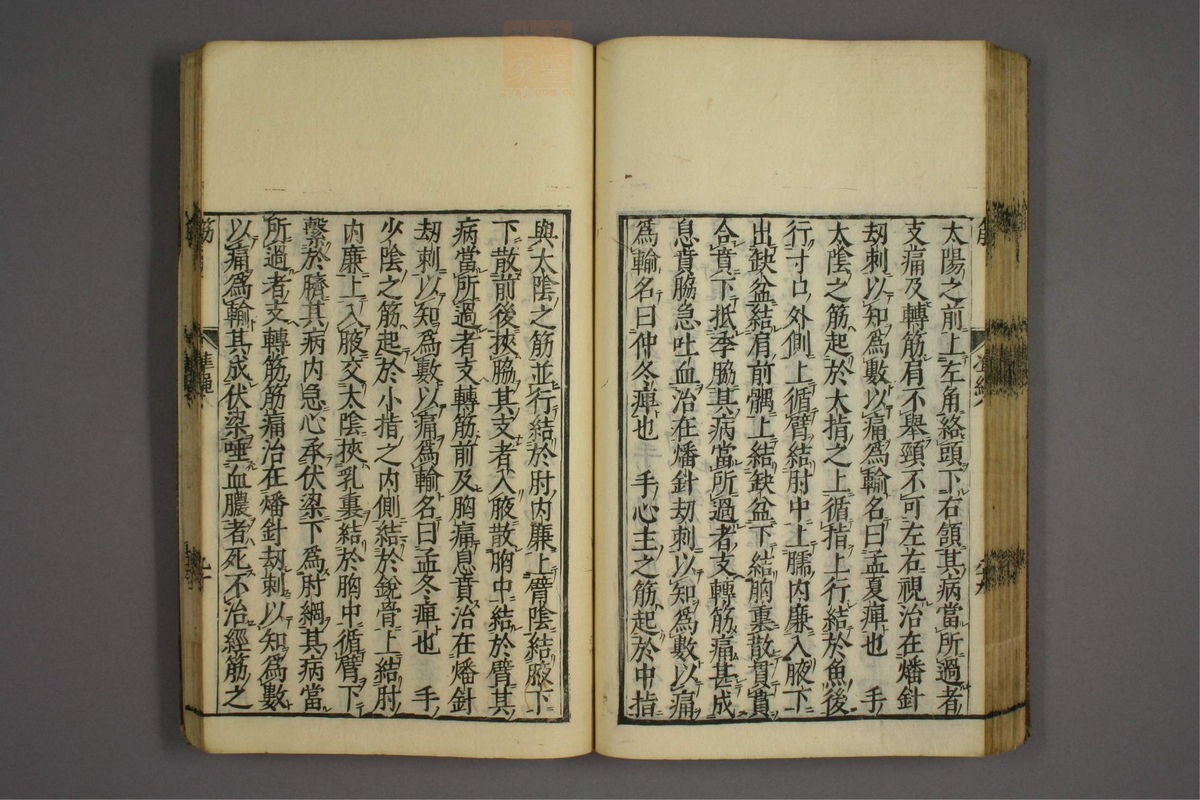 太陽之前上左角絡頭下右頷其病當所過者
支痛及轉筋肩不舉頸不可左右視治在燔針
劫刺以知爲數以痛爲輸名曰孟夏痺也　手
太陰之筋起於大指之上循指上行結於魚後
行寸口外側上循臂結肘中上臑内廉入腋下
出缺盆結肩前髃上結缺盆下結胸裏散貫賁
合賁下抵季脇其病當所過者支轉筋痛甚成
息賁脇急吐血治在燔針劫刺以知爲數以痛
爲輸名曰仲冬痺也　手心主之筋起於中指
與太陰之筋並行結於肘内廉上臂陰結腋下
下散前後挾脇其支者入腋散胸中結於臂其
病當所過者支轉筋前及胸痛息賁治在燔針
劫刺以知爲數以痛爲輸名曰孟冬痺也　手
少陰之筋起於小指之内側結於銳骨上結肘
内廉上入腋交太陰挾乳裏結於胸中循臂下
繫於臍其病内急心承伏梁下爲肘綱其病當
所過者支轉筋筋痛治在燔針劫刺以知爲數
以痛爲輸其成伏梁唾血膿者死不治經筋之
筋